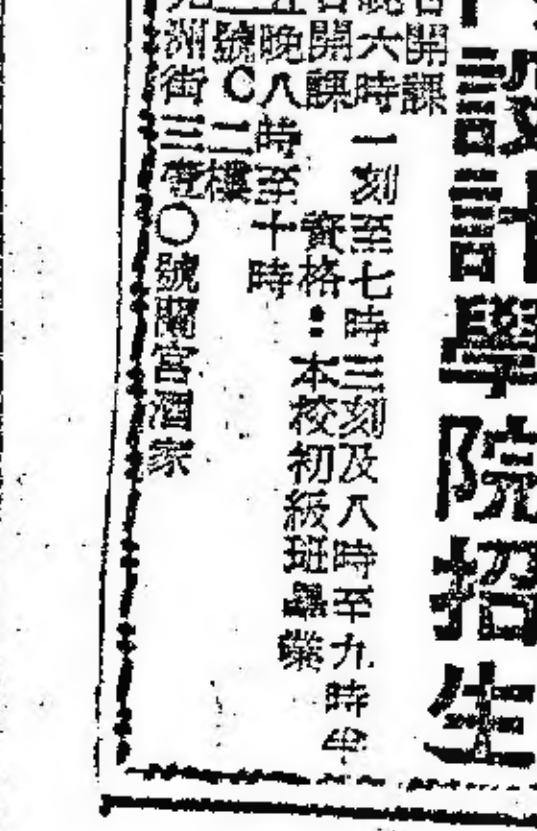 設計學院招生
開課
六時一刻至七時三刻及八時至九時半
開課 資格：本校初級班畢業
五晚八時至十時
號C二樓
九洲街三壱〇號蘭宮酒家